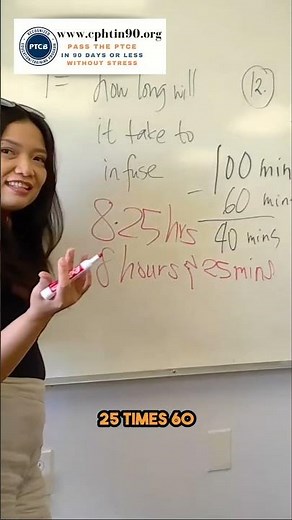 www.cphtin90.org
RECOGNIZED
PTCB
EDUCATION/TRAINING PROGRAM
PASS THE PTCE
IN 90 DAYS OR LESS
WITHOUT STRESS
how long will
it take to
infuse
12.
100 min
- 60 min
40 mins
8.25 hrs
8 hours & 25 mins
25 TIMES 60